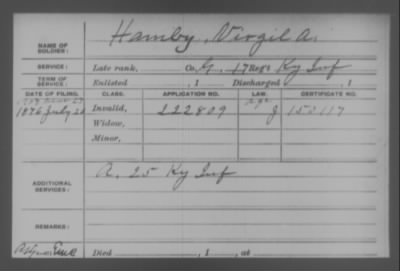 NAME OF SOLDIER: Hamby, Virgil A.
SERVICE: Late rank, Co. G, 17 Reg't Ky Inf
TERM OF SERVICE: Enlisted , 1 Discharged , 1
DATE OF FILING. CLASS. APPLICATION NO. LAW. CERTIFICATE NO.
1876 July 26 Invalid, 222809 J 150117
Widow,
Minor,
ADDITIONAL SERVICES: A. 25 Ky Inf
REMARKS:
Died , 1 , at